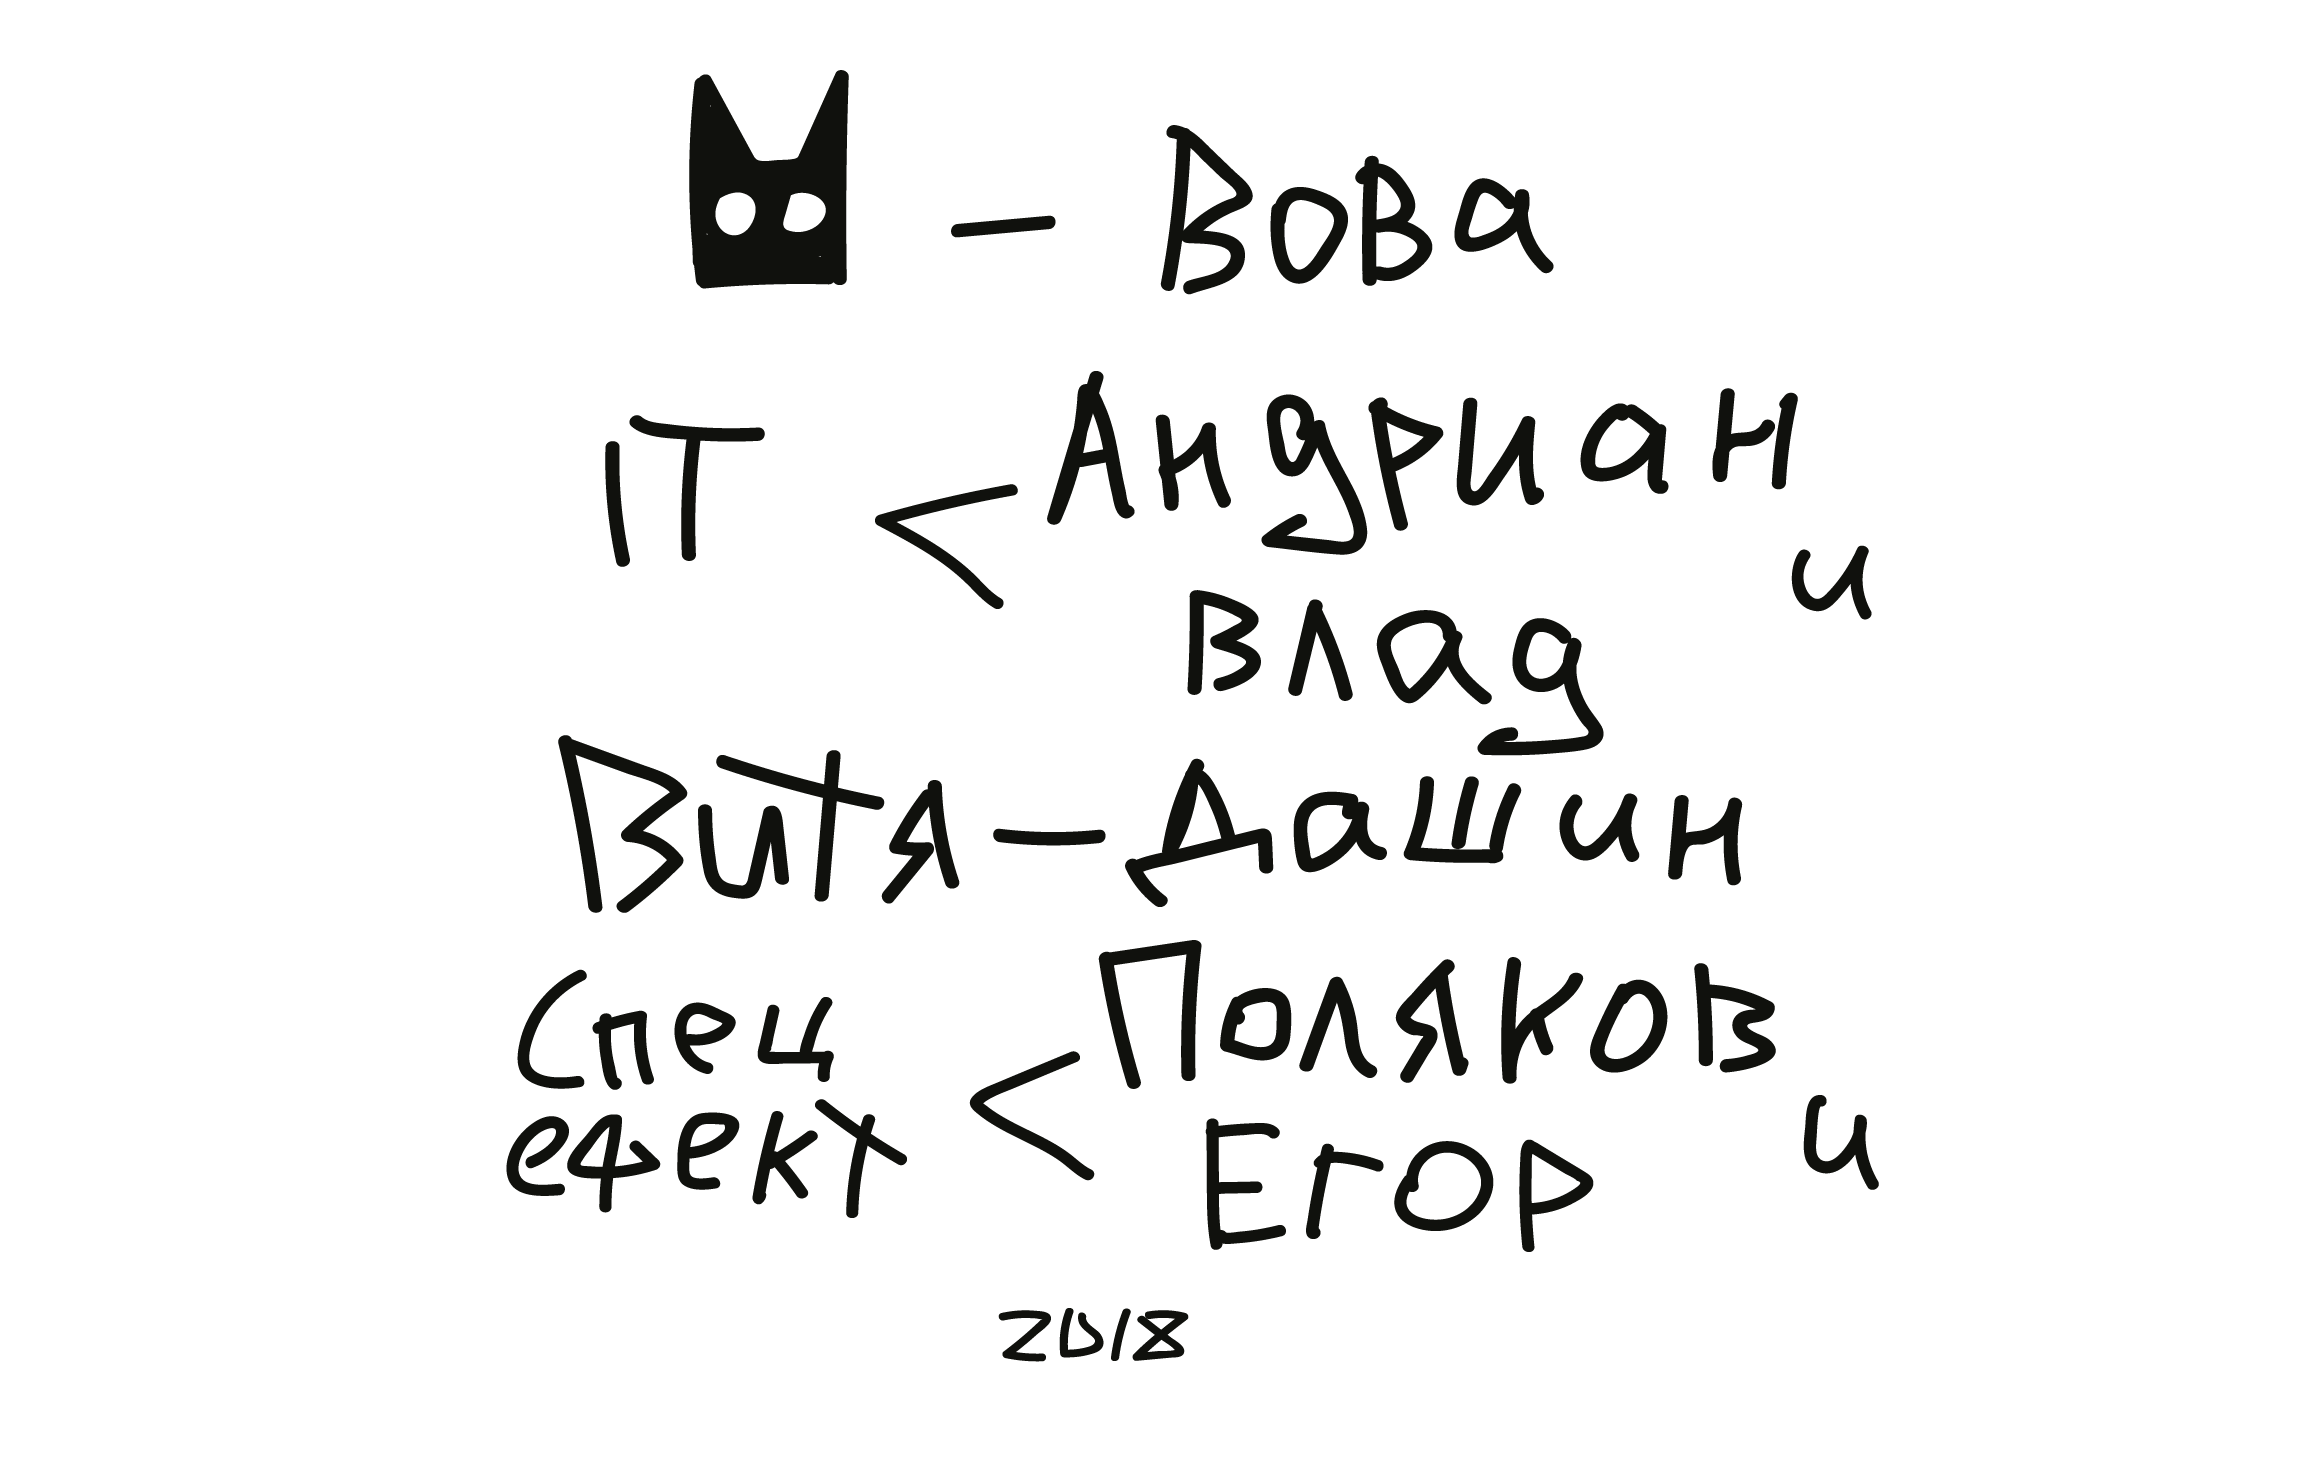 — Вова
IT < Андриан и
Влад
Витя — Дашин
Спец ефект < Поляков и
Егор
2018